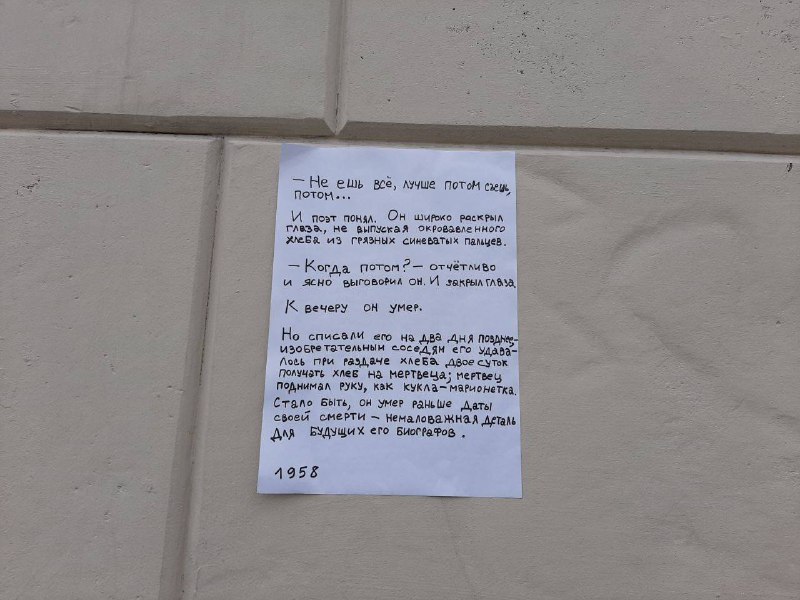 — Не ешь всё, лучше потом съешь,
потом...
И поэт понял. Он широко раскрыл
глаза, не выпуская окровавленного
хлеба из грязных синеватых пальцев.
— Когда потом? — отчётливо
и ясно выговорил он. И закрыл глаза.
К вечеру он умер.
Но списали его на два дня позднее –
изобретательным соседям его удава-
лось при раздаче хлеба двое суток
получать хлеб на мертвеца; мертвец
поднимал руку, как кукла-марионетка.
Стало быть, он умер раньше даты
своей смерти – немаловажная деталь
для будущих его биографов.
1958